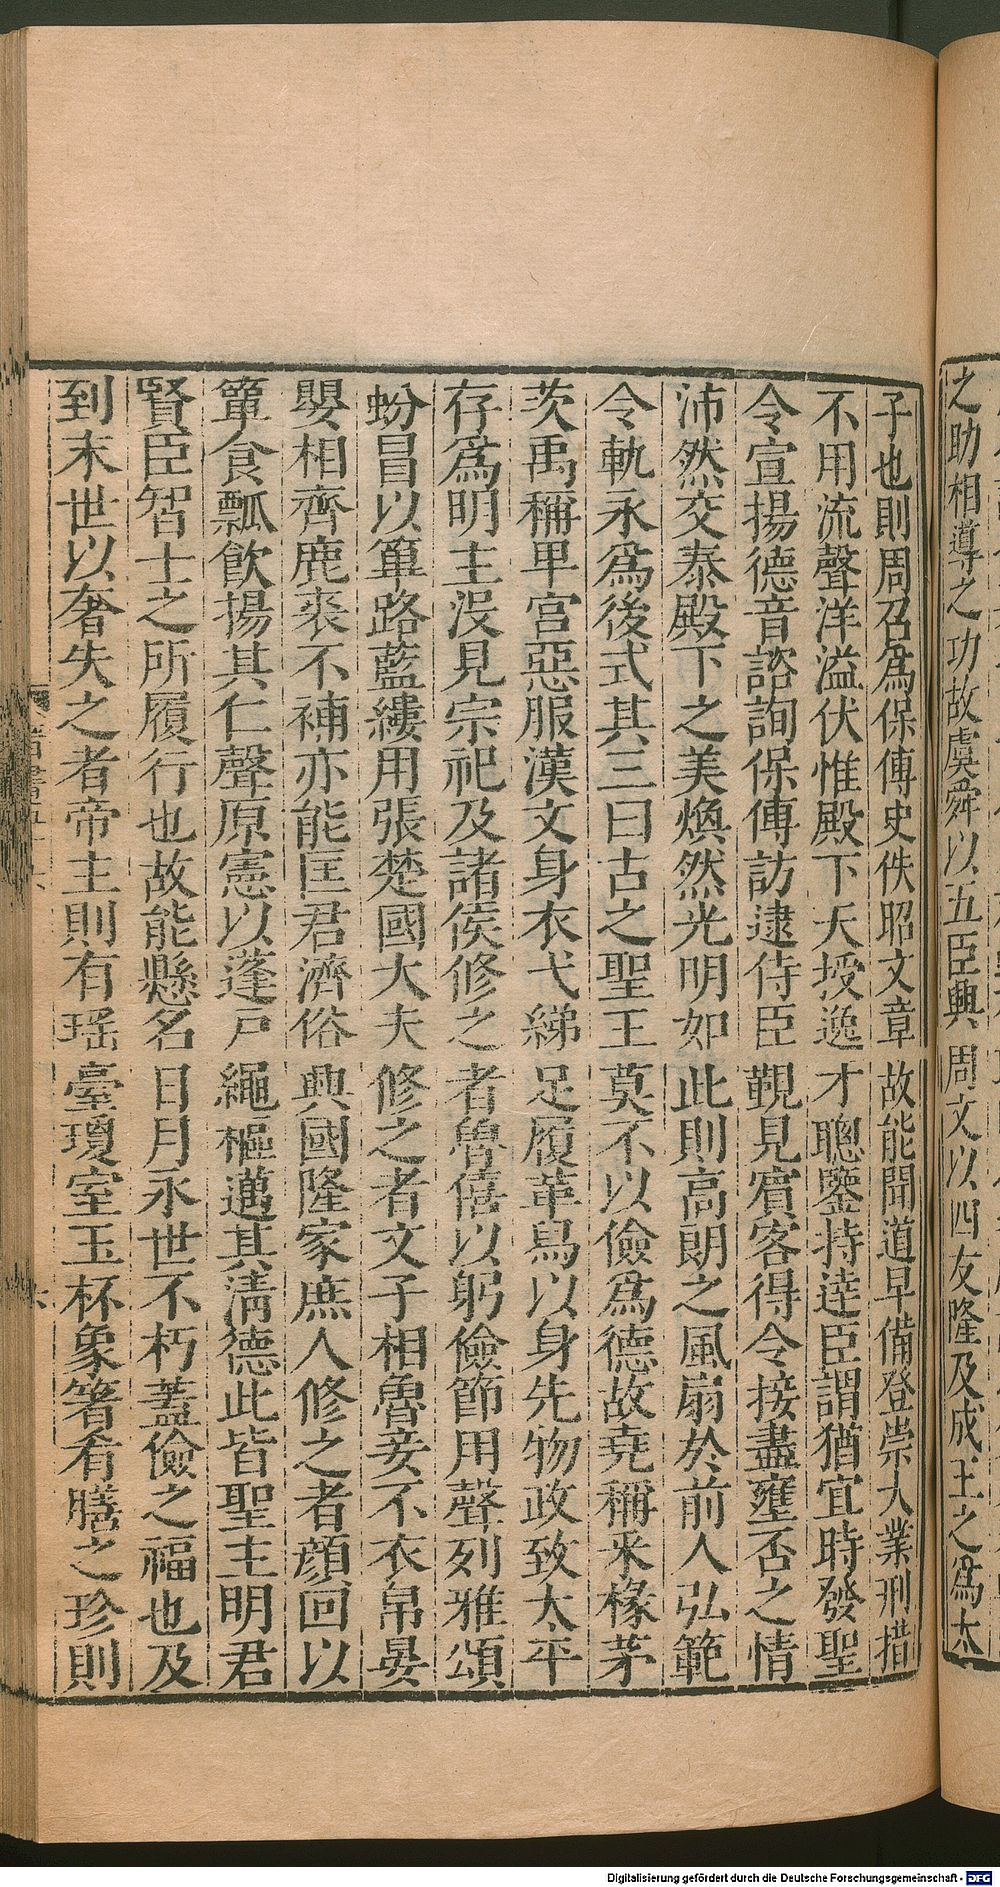 之助相導之功故虞舜以五臣興周文以四友隆及成王之爲太
子也則周召爲保傅史佚昭文章故能聞道早備登崇大業刑措
不用流聲洋溢伏惟殿下天授逸才聰鑒持達臣謂猶宜時發聖
令宣揚德音諮詢保傅訪逮侍臣覲見賓客得令接盡壅否之情
沛然交泰殿下之美煥然光明如此則高朗之風扇於前人弘範
令軌永爲後式其三曰古之聖王莫不以儉爲德故堯稱采椽茅
茨禹稱卑宮惡服漢文身衣弋綈足履革舄以身先物政致太平
存爲明主沒見宗祀及諸侯修之者魯僖以躬儉節用聲列雅頌
蚡冒以篳路藍縷用張楚國大夫修之者文子相魯妾不衣帛晏
嬰相齊鹿裘不補亦能匡君濟俗興國隆家庶人修之者顔回以
簞食瓢飲揚其仁聲原憲以蓬戶繩樞邁其清德此皆聖主明君
賢臣智士之所履行也故能懸名日月永世不朽蓋儉之福也及
到末世以奢失之者帝主則有瑶臺瓊室玉杯象箸肴膳之珍則
Digitalisierung gefördert durch die Deutsche Forschungsgemeinschaft - DFG